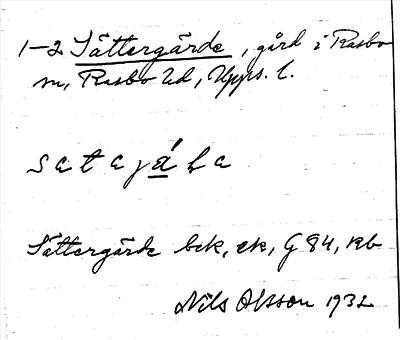 1-2 Sättergärde, gård i Rasbo
sn, Rasbo hd, Upps. l.
Sättergärde bck, ek, G 84, Kb
Nils Olsson 1932